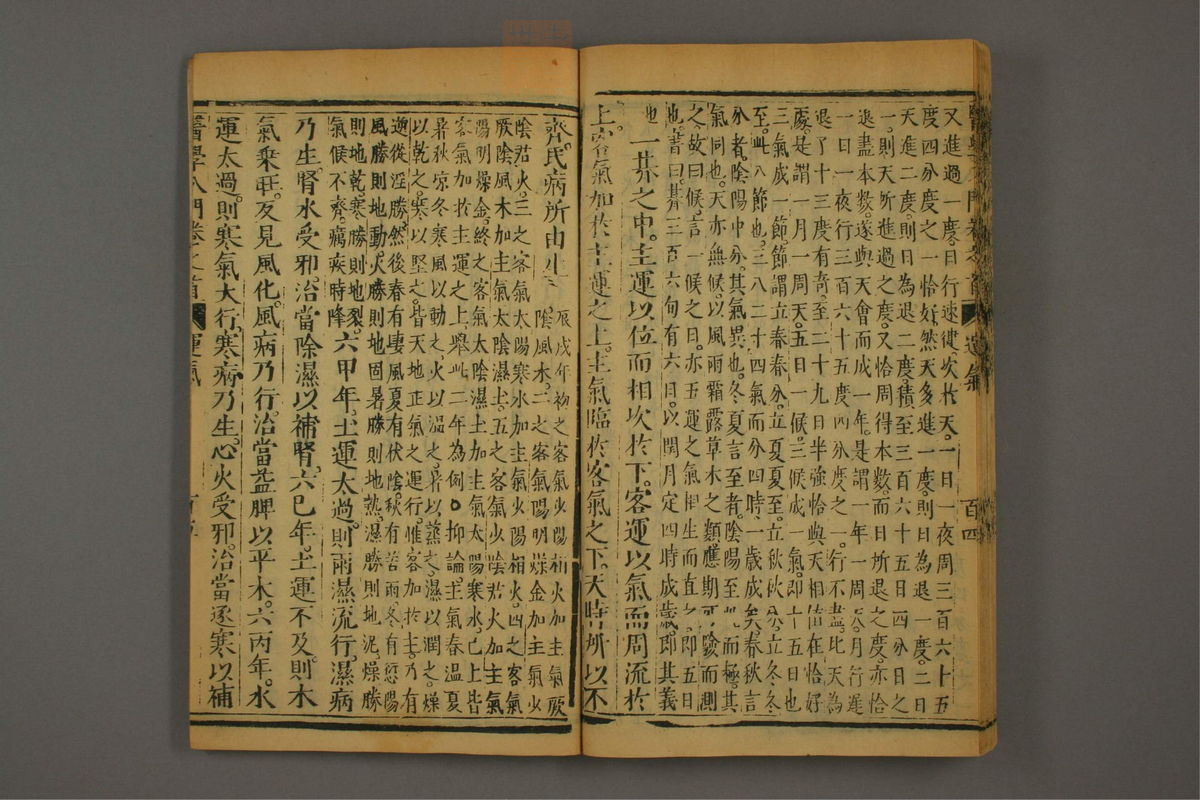 又進過一度日行速健次於天一日一夜周三百六十五
度四分度之一恰好然天多進一度則日為退一度二日
天進二度則日為退二度積至三百六十五日四分日之
一則天所進過之度又恰周得本數而日所退之度亦恰
退盡本數遂與天會而成一年是謂一年一周天月行遲
一日一夜行三百六十五度四分度之一行不盡比天為
退了十三度有奇至二十九日半強恰與天相值在恰好
處是謂一月一周天五日一候三候成一氣即十五日也
三氣成一節節謂立春春分立夏夏至立秋秋分立冬冬
至此八節也三八二十四氣而分四時一歲成矣春秋言
分者陰陽中分其氣異也冬夏言至者陰陽至此而極其
氣同也天亦無候以風雨霜露草木之類應期可驗而測
之故曰候言一候之日亦五運之氣相生而直之即五日
也書曰朞三百六旬有六日以閏月定四時成歲即其義
也 一朞之中主運以位而相次於下客運以氣而周流於
上客氣加於主運之上主氣臨於客氣之下天時所以不
百四
齊民病所由生
辰戌年初之客氣少陽相火加主氣厥
陰風木二之客氣陽明燥金加主氣少
陰君火三之客氣太陽寒水加主氣少陽相火四之客氣
厥陰風木加主氣太陰濕土五之客氣少陰君火加主氣
陽明燥金終之客氣太陰濕土加主氣太陽寒水已上皆
客氣加於主運之上舉此二年為例〇抑論主氣春溫夏
暑秋涼冬寒風以動之火以溫之暑以蒸之濕以潤之燥
以乾之寒以堅之皆天地正氣之運行惟客加於主乃有
逆從淫勝然後春有凄風夏有伏陰秋有苦雨冬有愆陽
風勝則地動火勝則地固暑勝則地熱濕勝則地泥燥勝
則地乾寒勝則地裂
氣候不齊癘疾時降
六甲年土運太過則雨濕流行濕病
乃生腎水受邪治當除濕以補腎六己年土運不及則木
氣乘旺反見風化風病乃行治當益脾以平木六丙年水
運太過則寒氣大行寒病乃生心火受邪治當逐寒以補
醫學入門卷之首 運氣